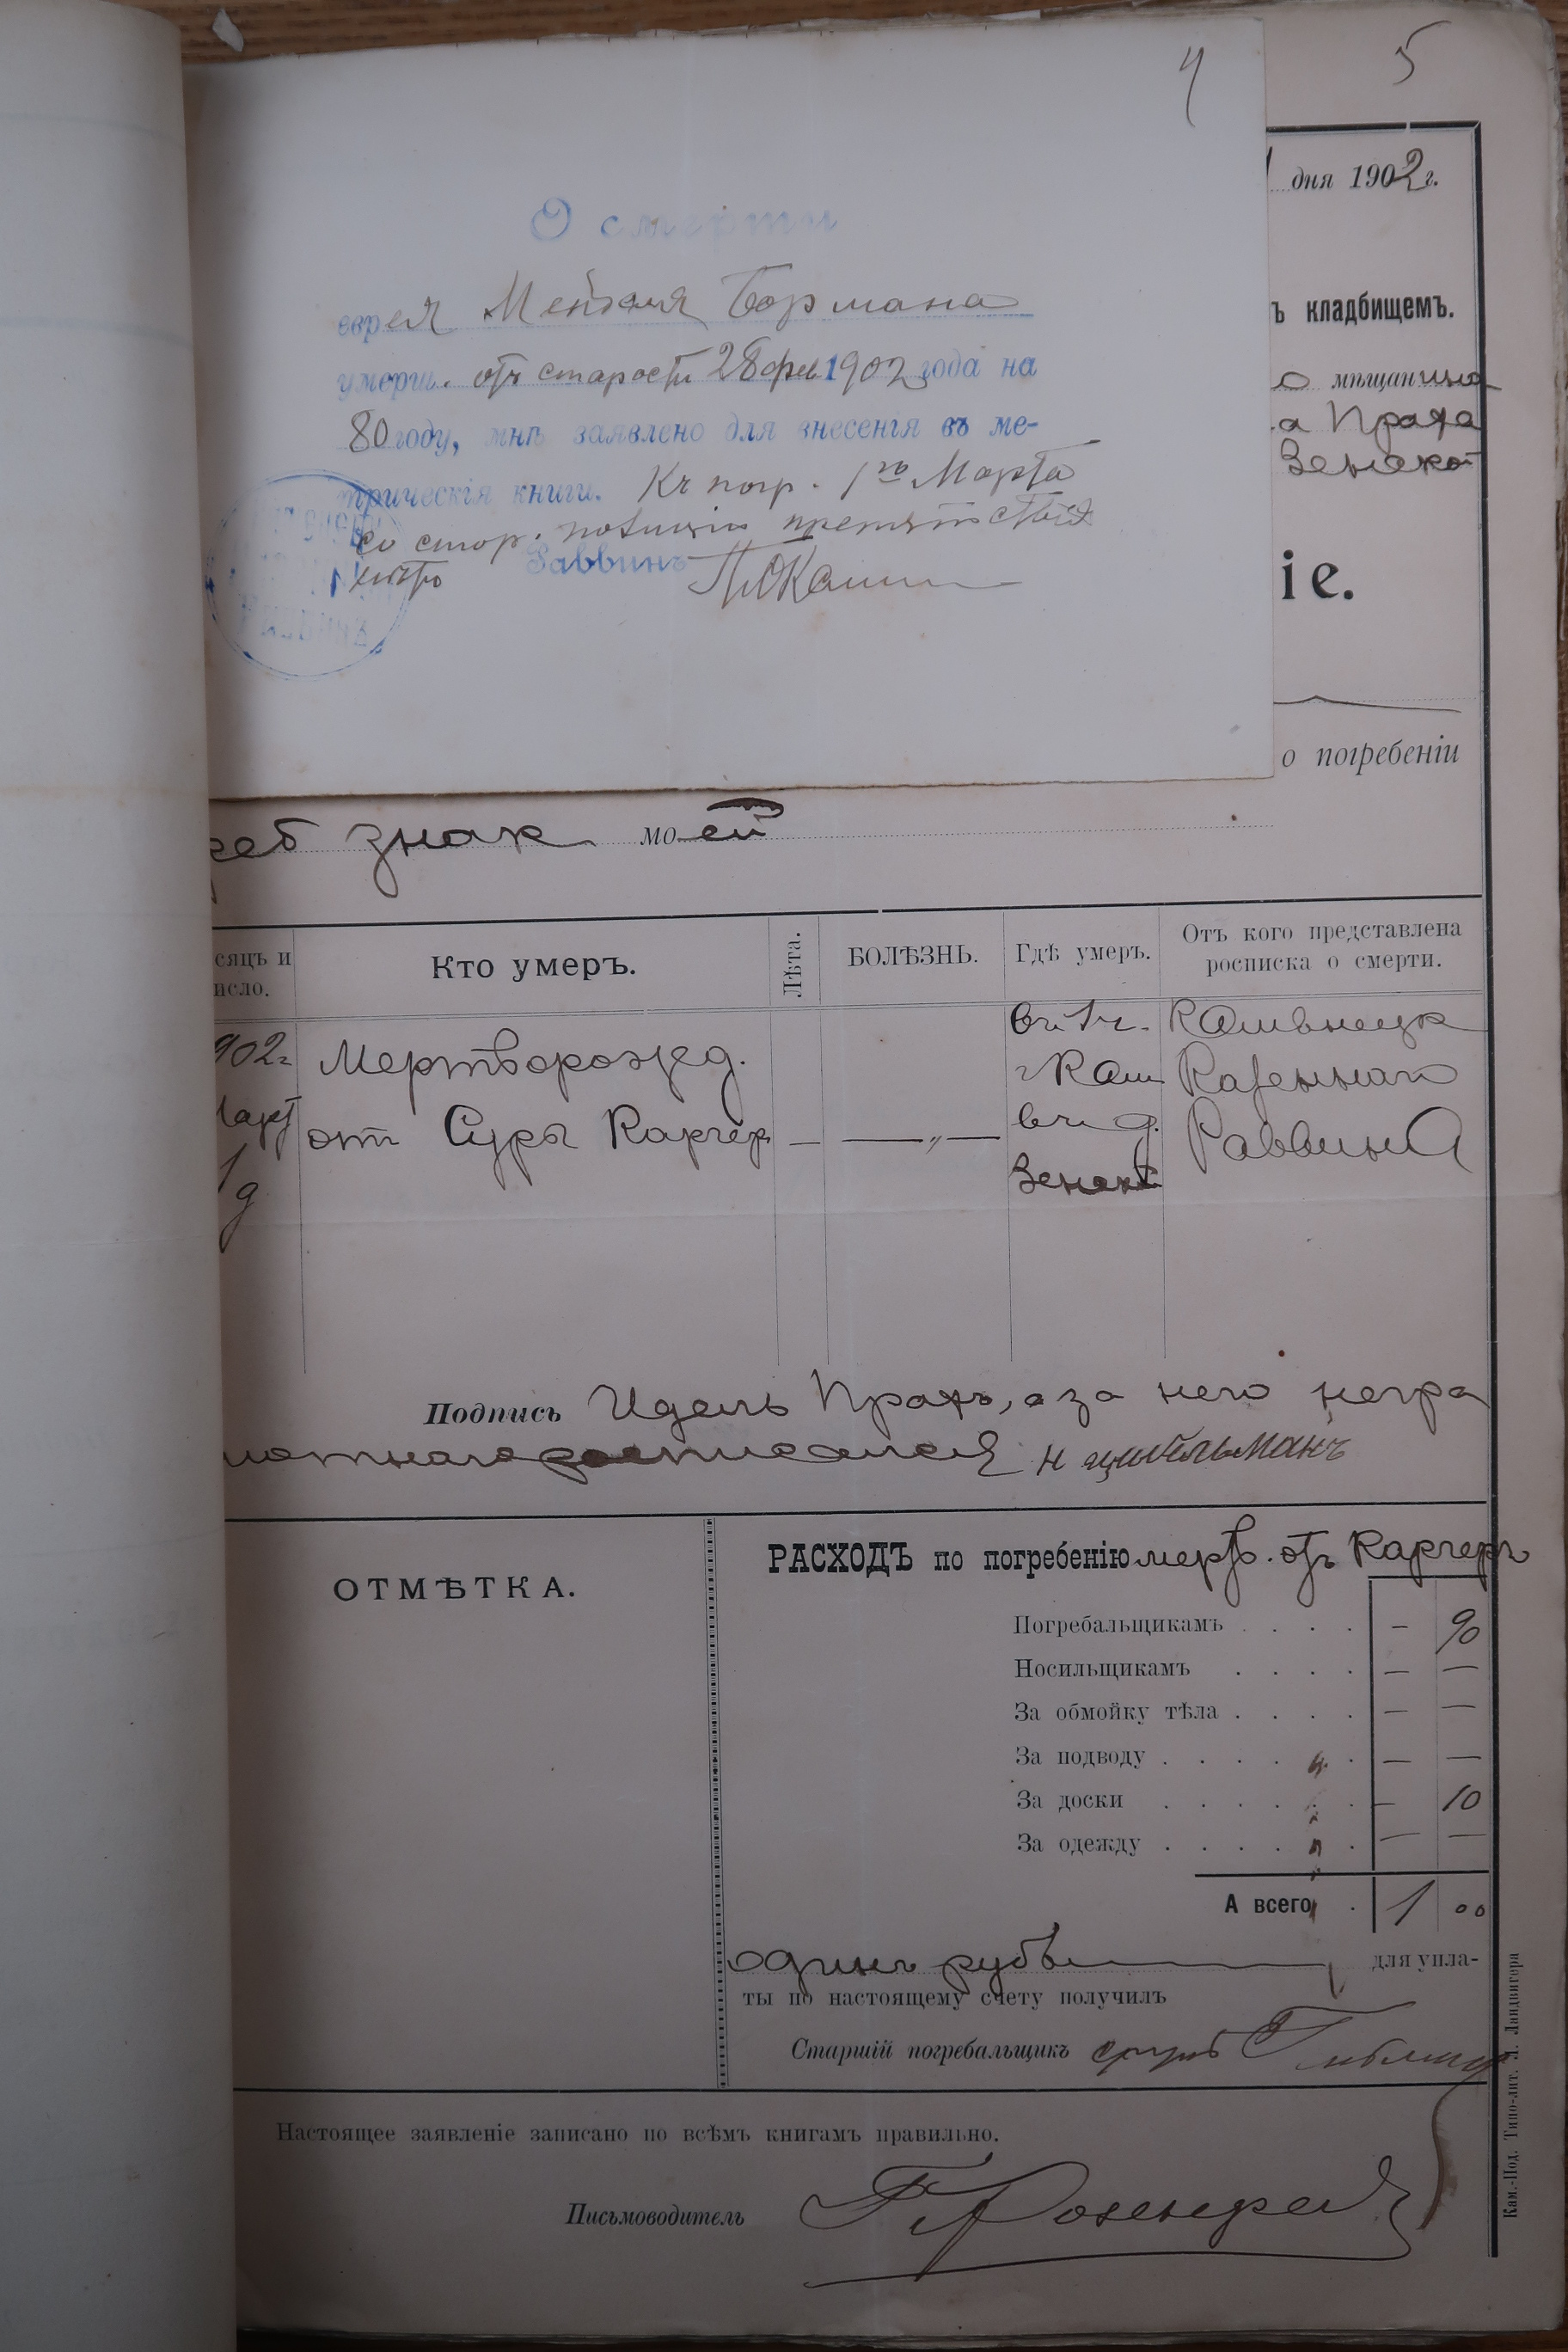 4
5
О смерти
еврея Мейзля Бормана
умерш. отъ старости 28 фев 1902 года на
80 году, мнѣ заявлено для внесенія въ ме-
трическія книги. Къ погр. 1го Марта
со стор. полиціи препятствія
нѣтъ
Раввинъ
дня 1902 г.
ъ кладбищемъ.
о мѣщанина
а Праха
Зенкой
іе.
о погребеніи
реб знак моей
сяцъ и
исло.
Кто умеръ.
Лѣта.
БОЛѢЗНЬ.
Гдѣ умеръ.
Отъ кого представлена
росписка о смерти.
902 г
Март
1
д
Мертворожд.
от Суры Карчер
— —„—
г Кам
въ д.
Казеннаго
Раввина
Подпись Идель Прахъ, а за него негра
мотнаго росписался Н Цимельманъ
ОТМѢТКА.
РАСХОДЪ по погребенію мертв. отъ Карчеръ
Погребальщикамъ . . . . — 90
Носильщикамъ . . . . — —
За обмойку тѣла . . . . — —
За подводу . . . . . — —
За доски . . . . . — 10
За одежду . . . . . — —
А всего . 1 00
одинъ рубль для упла-
ты по настоящему счету получилъ
Старшій погребальщикъ
Настоящее заявленіе записано по всѣмъ книгамъ правильно.
Письмоводитель
Кам.-Под. Типо-лит. Л. Ландвигера